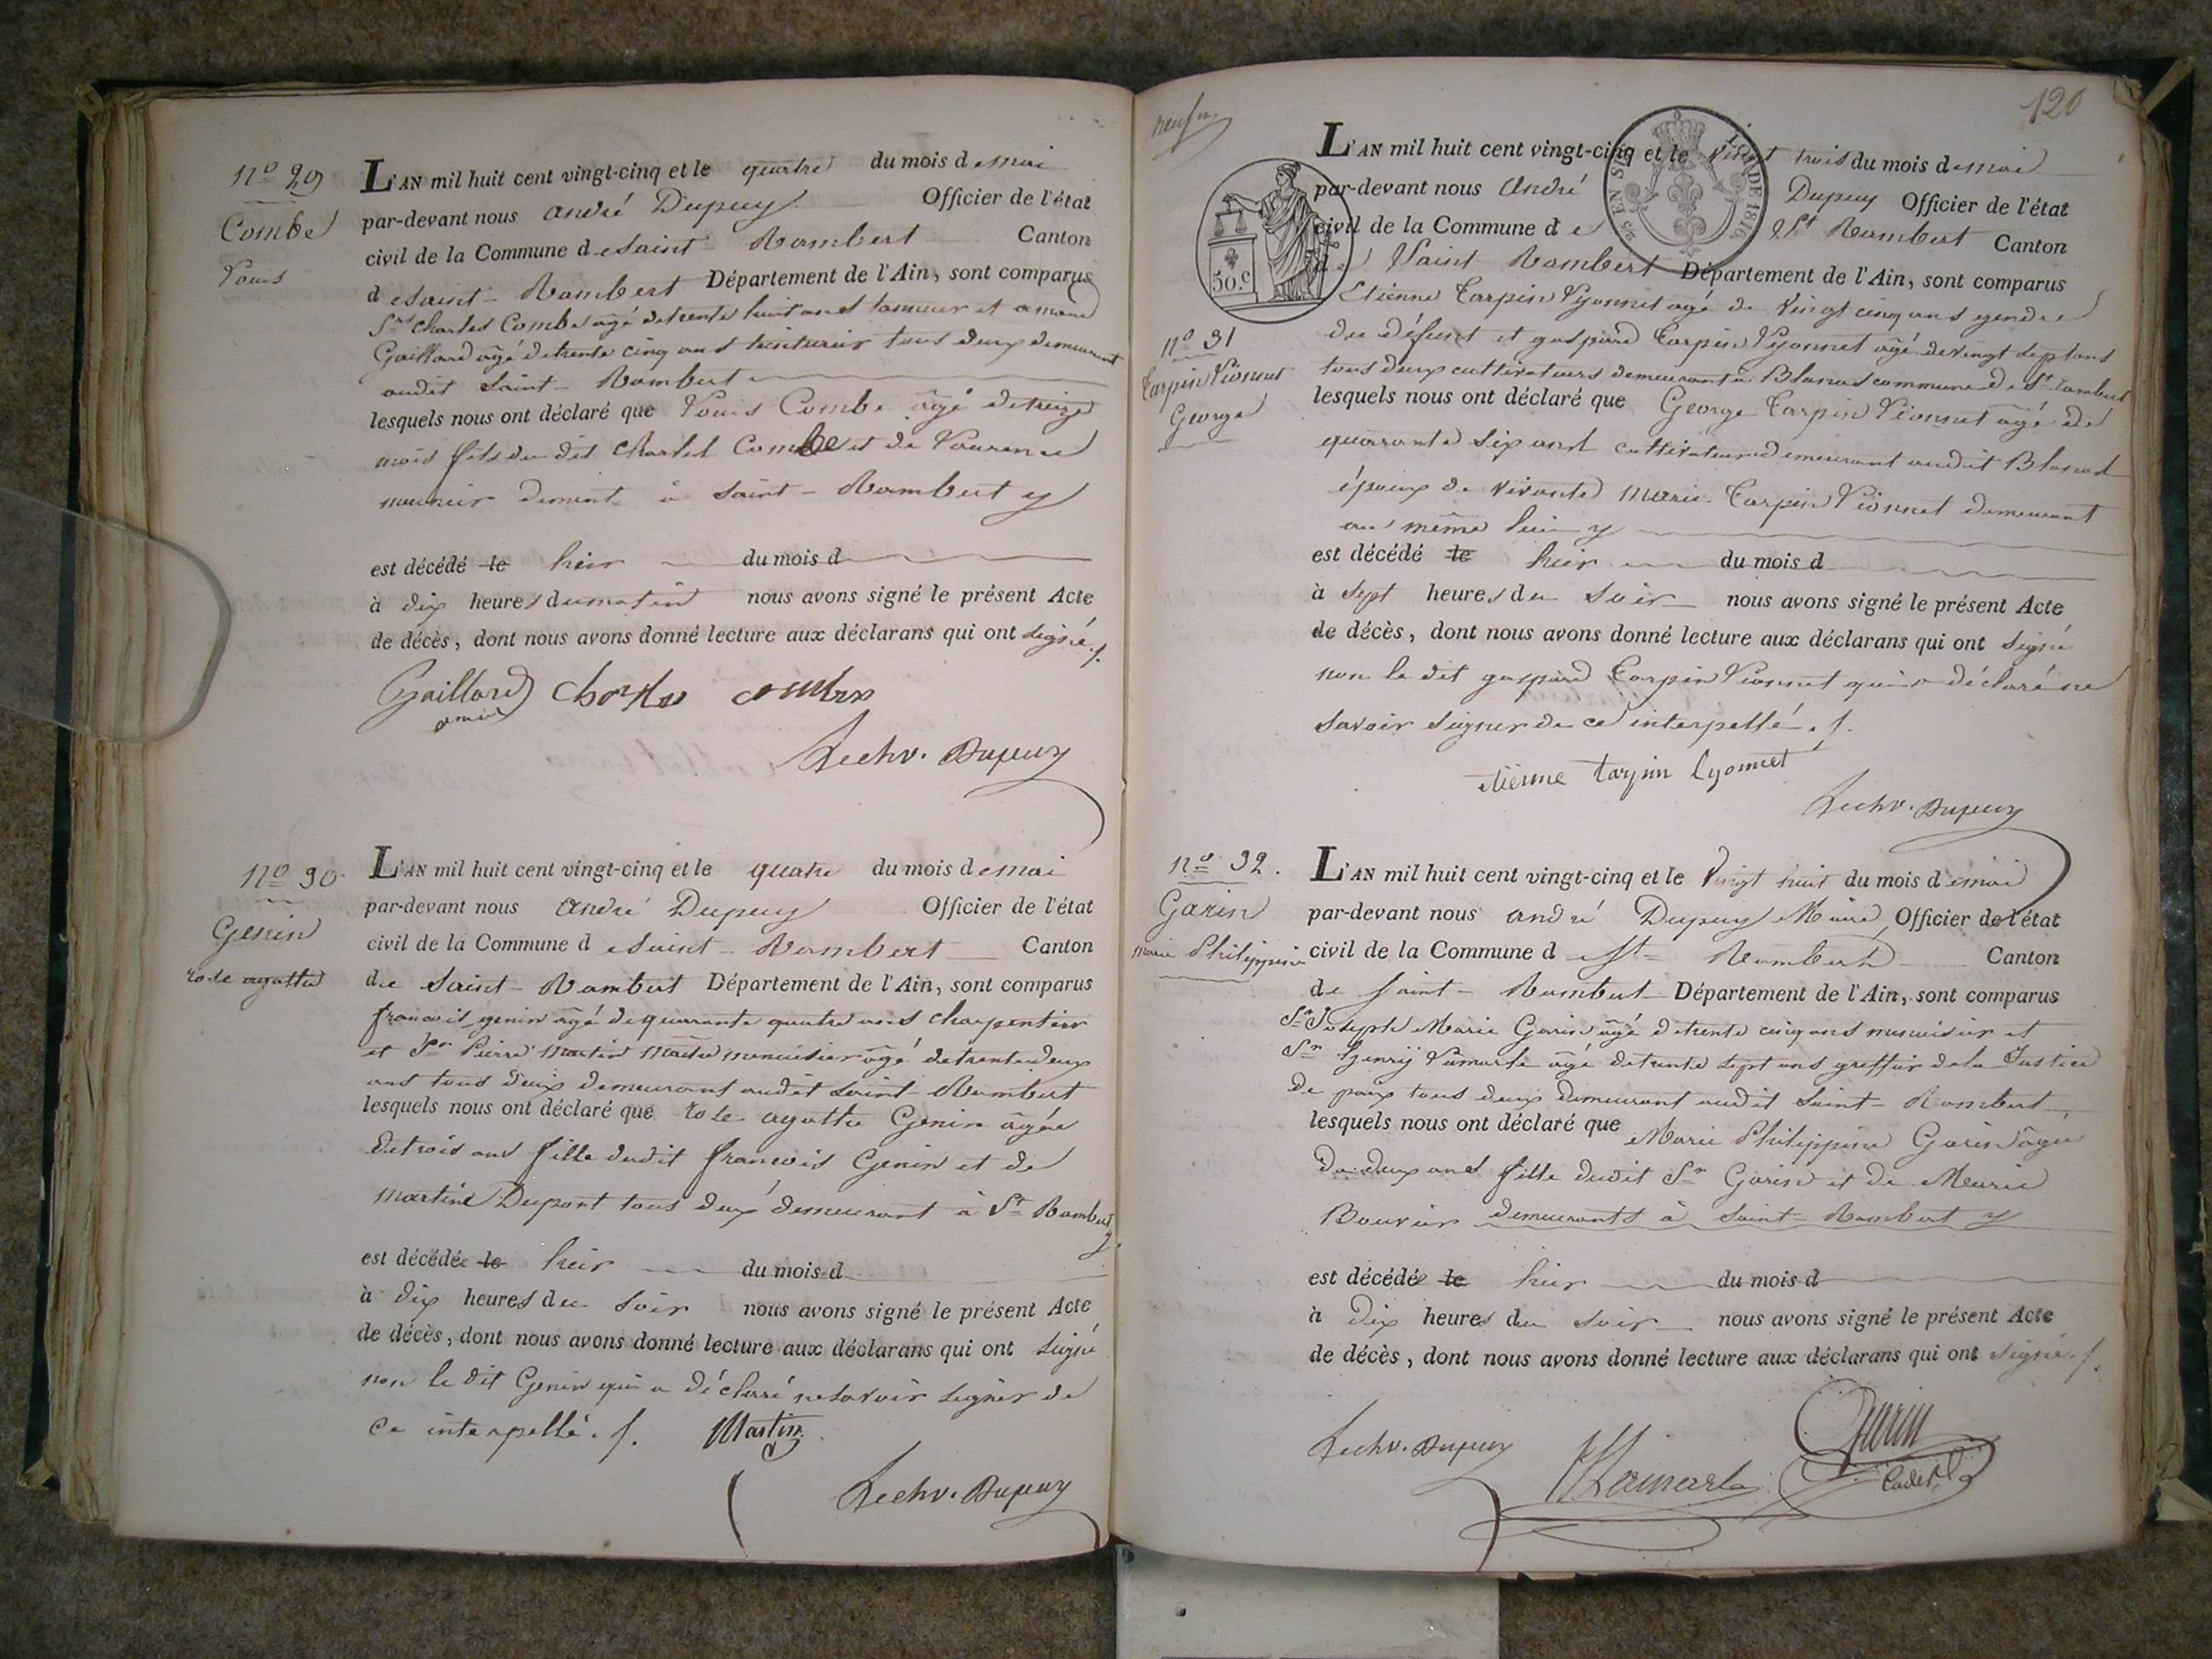 nº 29
Combe
Louis
L'AN mil huit cent vingt-cinq et le quatre du mois de mai
par-devant nous André Dupuy Officier de l'état
civil de la Commune de Saint Rambert Canton
de Saint-Rambert Département de l'Ain, sont comparus
Sr Charles Combe agé de trente huit ans tanneur et amané
Gaillard âgé de trente cinq ans teinturier tous deux demeurant
audit Saint-Rambert
lesquels nous ont déclaré que Louis Combe âgé de treize
mois fils du dit Charles Combe et de Laurence
meunier demnt à Saint-Rambert y
est décédé le hier du mois d
à dix heures du matin nous avons signé le présent Acte
de décès, dont nous avons donné lecture aux déclarans qui ont signé ./.
Gaillard charles combe
Lechv. Dupuy
nº 30
Genin
rose agathe
L'AN mil huit cent vingt-cinq et le quatre du mois de mai
par-devant nous André Dupuy Officier de l'état
civil de la Commune de Saint-Rambert Canton
de Saint-Rambert Département de l'Ain, sont comparus
francois genin âgé de quarante quatre ans charpentier
et Sr Pierre Martin Maître menuisier âgé de trente deux
ans tous deux demeurant audit Saint-Rambert
lesquels nous ont déclaré que rose agathe Genin âgée
de trois ans fille dudit francois Genin et de
martine Dupont tous deux demeurant à St Rambert y
est décédée le hier du mois d
à dix heures du soir nous avons signé le présent Acte
de décès, dont nous avons donné lecture aux déclarans qui ont signé
non le dit Genin qui a déclaré ne savoir signer de
ce interpellé ./. Martin
Lechv. Dupuy
120
L'AN mil huit cent vingt-cinq et le vingt trois du mois de mai
par-devant nous André Dupuy Officier de l'état
civil de la Commune de St Rambert Canton
de Saint Rambert Département de l'Ain, sont comparus
25 EN SUS
LOI DE 1816
50.c
nº 31
Tarpin Lionnet
George
Etienne Tarpin Lyonnet agé de vingt cinq ans gendre
du défunt et gaspard Tarpin Lyonnet âgé de vingt sept ans
tous deux cultivateurs demeurant à Blanas commune de St rambert
lesquels nous ont déclaré que George Tarpin Lionnet agé de
quarante six ans cultivateur demeurant audit Blanas
époux de vivante Marie Tarpin Lionnet demeurant
au même lieu y
est décédé le hier du mois d
à sept heures du soir nous avons signé le présent Acte
de décès, dont nous avons donné lecture aux déclarans qui ont signé
non le dit gaspard Tarpin Lionnet qui a déclaré ne
savoir signer de ce interpellé ./.
etienne tarpin lyonnet
Lechv. Dupuy
nº 32.
Garin
marie Philippine
L'AN mil huit cent vingt-cinq et le Vingt huit du mois de mai
par-devant nous André Dupuy Maire, Officier de l'état
civil de la Commune de St Rambert Canton
de Saint-Rambert Département de l'Ain, sont comparus
Sr Joseph Marie Garin âgé de trente cinq ans menuisier et
Sr henrij âgé de trente sept ans greffier de la Justice
de paix tous deux demeurant audit Saint-Rambert
lesquels nous ont déclaré que Marie Philippine Garin âgée
de deux ans fille dudit Sr Garin et de Marie
Bouvier demeurants à Saint-Rambert y
est décédée le hier du mois d
à Dix heures du soir nous avons signé le présent Acte
de décès, dont nous avons donné lecture aux déclarans qui ont signé ./.
Lechv. Dupuy
Garin
Cadet